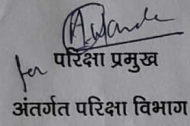 for
परिक्षा प्रमुख
अंतर्गत परिक्षा विभाग